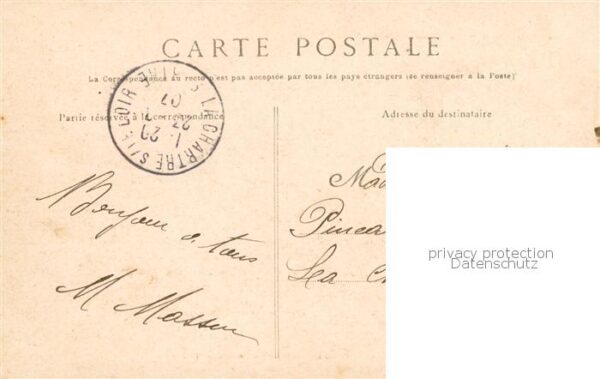 CARTE POSTALE
La Correspondance au recto n'est pas acceptée par tous les pays étrangers (se renseigner à la Poste)
LA CHARTRE S/LE LOIR
27
07
Partie réservée à la correspondance
Adresse du destinataire
Bonjour à tous
M Masson
Pincea
Lea
privacy protection
Datenschutz